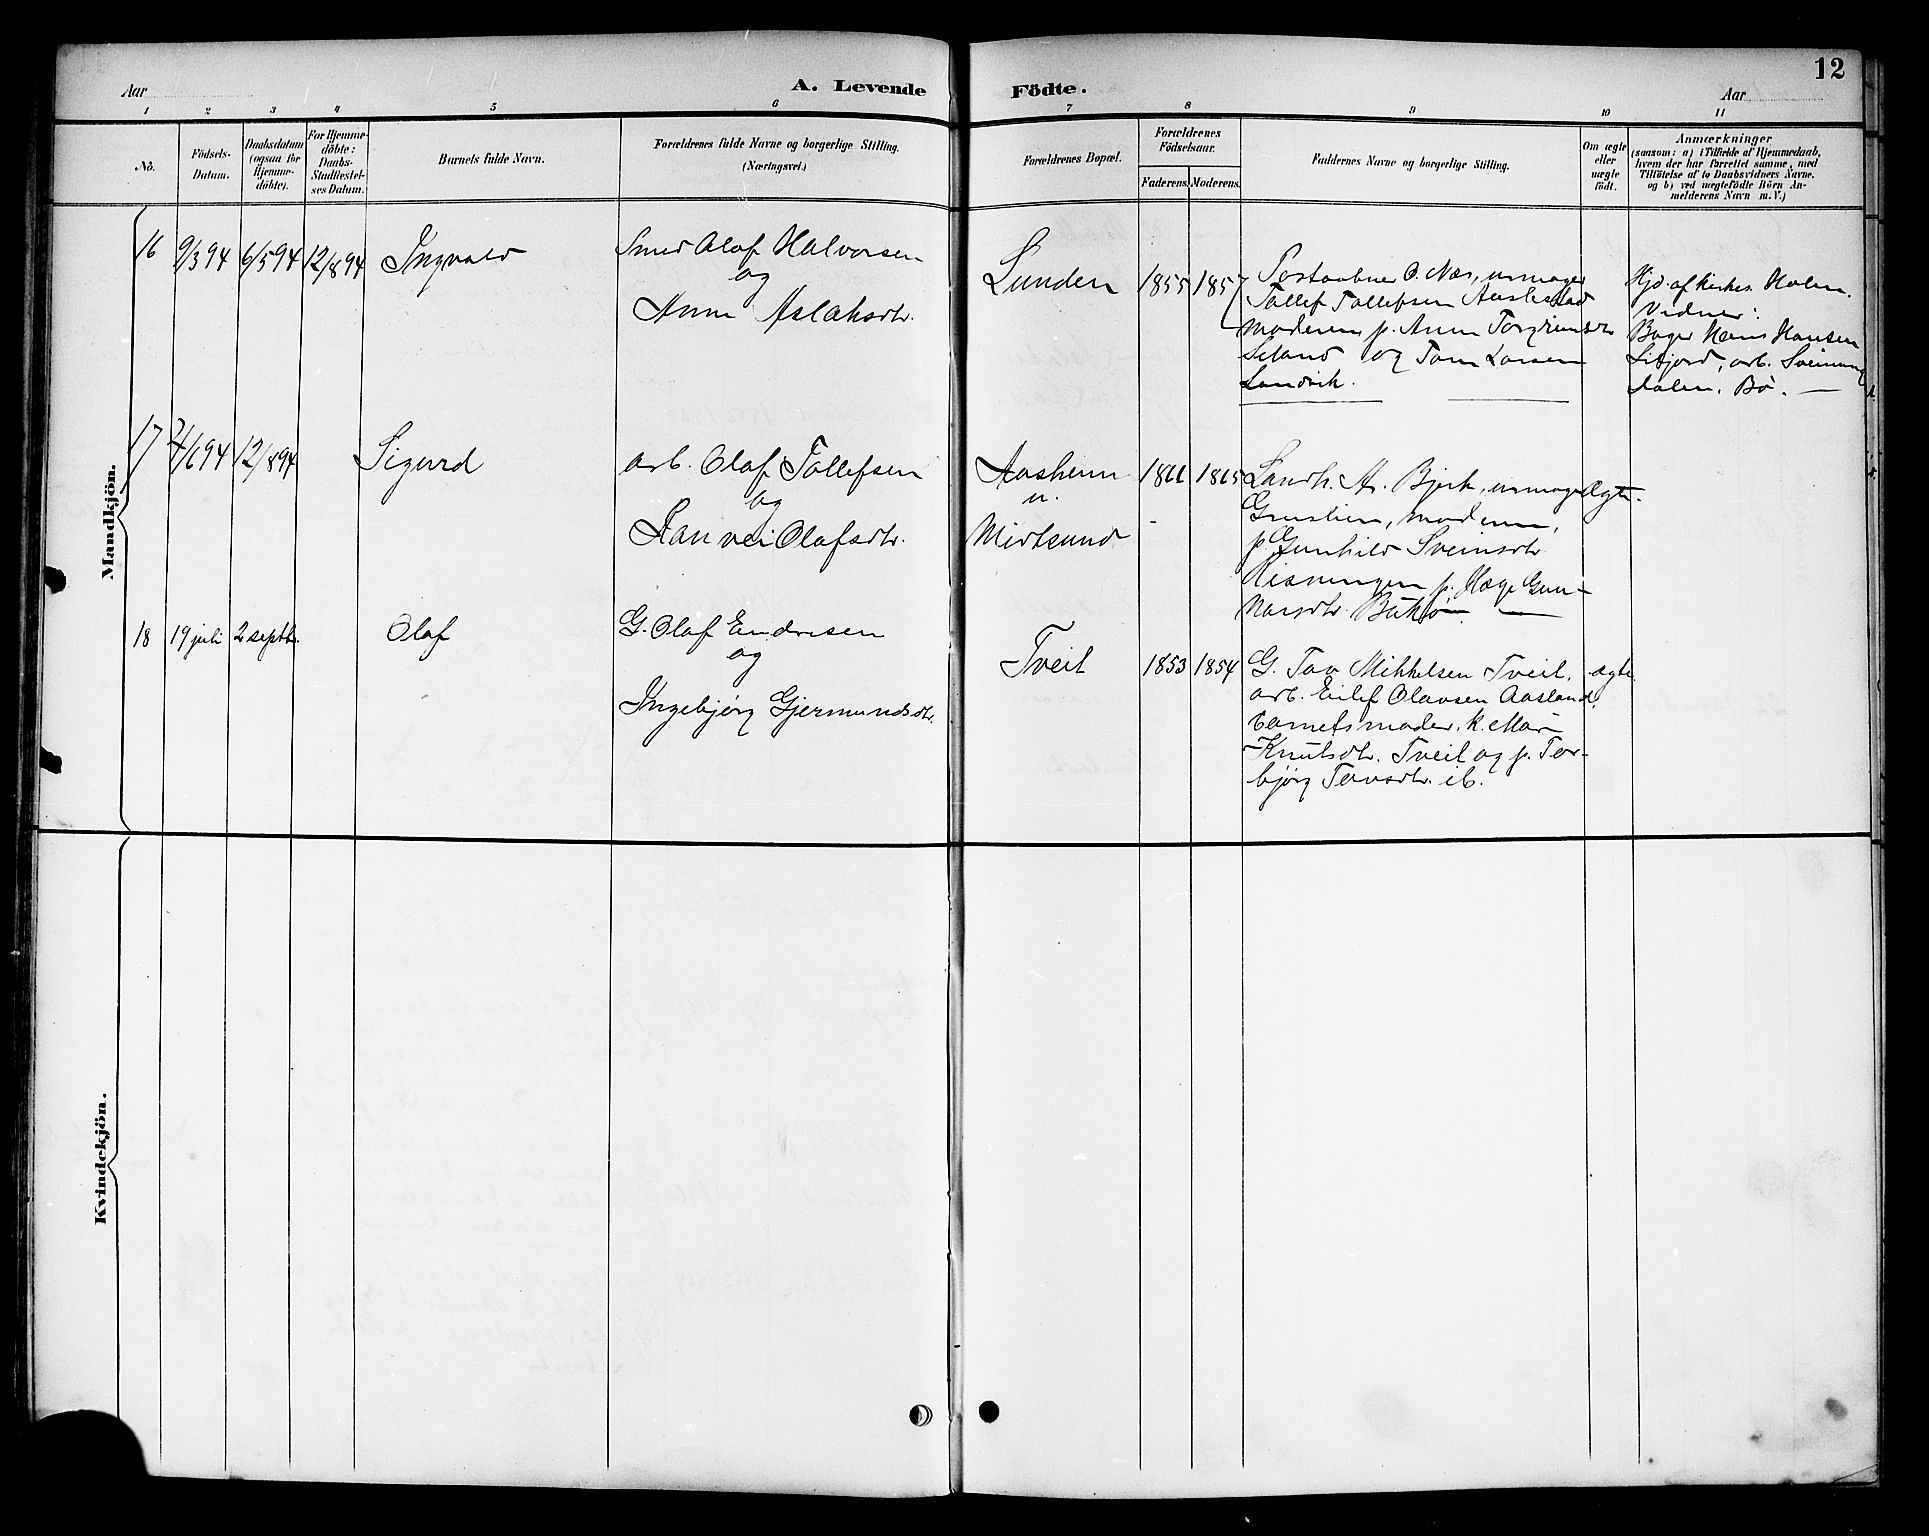 12
Aar
A. Levende Födte.
Aar
1 2 3 4 5 6 7 8 9 10 11
No.
Födsels-
Datum.
Daabsdatum
(ogsaa for
Hjemme-
döbte).
For Hjemme-
döbte:
Daabs-
Stadfæstel-
ses Datum.
Barnets fulde Navn.
Forældrenes fulde Navne og borgerlige Stilling.
(Næringsvei.)
Forældrenes Bopæl.
Forældrenes
Födselsaar.
Faderens. Moderens.
Faddernes Navne og borgerlige Stilling.
Om ægte
eller
uægte
födt.
Anmærkninger
(saasom: a) i Tilfælde af Hjemmedaab,
hvem der har forrettet samme, med
Tilföielse af to Daabsvidners Navne.
og b) ved uægtefödte Börn An-
melderens Navn m. V.)
Mandkjön.
16 9/3 94 6/5 94 12/8 94 Ingvald
Smed Olaf Halvorsen
og
Anne Aslaksdtr.
Lunden
1855 1857
Postaabner O. Næs, urmager
Tollef Tollefsen
moderen, p. Anne
Seland og Tom Larsen
Landvik.
Hjd. af Holm.
Vidner:
Hans Hansen
arb. Sveinung
Dalen, Bö. —
17 /6 94 12/8 94 Sigurd
arb. Olaf Tollefsen
og
Ranvei Olafsdtr.
Aasheim
u.
Midtsund
1866 1865
Landh. A. Bjork, urmager
moderen,
p. Gunhild Sveinsdtr.
p. Hæge Gun-
narsdtr.
ægte.
18 19 juli 2 septb. Olaf
G. Olaf Endresen
og
Ingebjørg Gjermundsdtr.
Tveit
1853 1854
G. Tov Mikkelsen Tveit,
arb. Eilef Olavsen Aasland,
barnets moder, k. Mari
Knutsdtr. Tveit og p. Tor-
bjørg Tovsdtr. ib.
ægte
Kvindekjön.